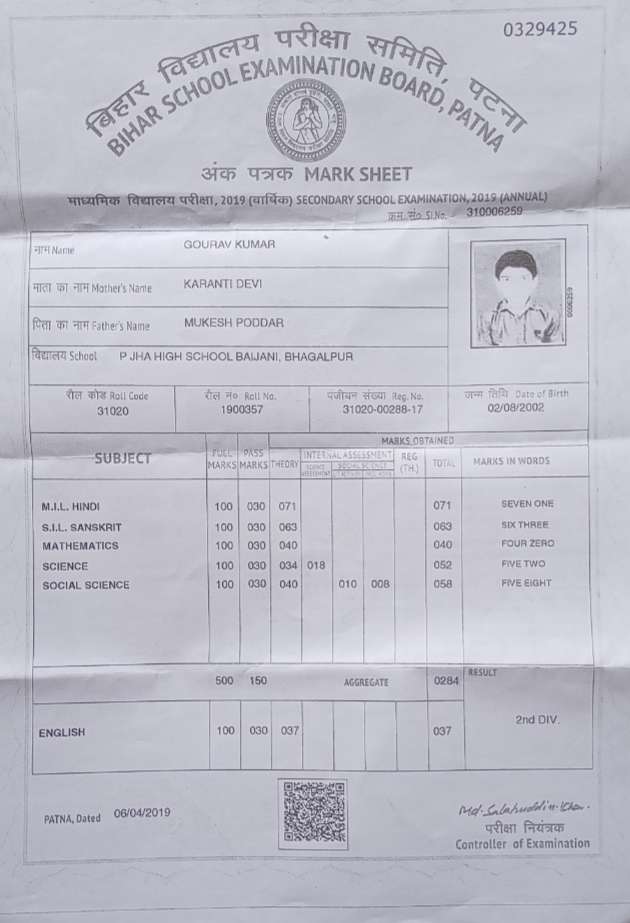 0329425
बिहार विद्यालय परीक्षा समिति, पटना
BIHAR SCHOOL EXAMINATION BOARD, PATNA
अंक पत्रक MARK SHEET
माध्यमिक विद्यालय परीक्षा, 2019 (वार्षिक) SECONDARY SCHOOL EXAMINATION, 2019 (ANNUAL)
क्रम. सं० Sl.No. 310006259
नाम Name GOURAV KUMAR
माता का नाम Mother's Name KARANTI DEVI
पिता का नाम Father's Name MUKESH PODDAR
विद्यालय School P JHA HIGH SCHOOL BAIJANI, BHAGALPUR
रौल कोड Roll Code रौल नं० Roll No. पंजीयन संख्या Reg. No. जन्म तिथि Date of Birth
31020 1900357 31020-00288-17 02/08/2002
MARKS OBTAINED
SUBJECT FULL MARKS PASS MARKS THEORY INTERNAL ASSESSMENT REG (TH.) TOTAL MARKS IN WORDS
SOCIAL SCIENCE
M.I.L. HINDI 100 030 071 071 SEVEN ONE
S.I.L. SANSKRIT 100 030 063 063 SIX THREE
MATHEMATICS 100 030 040 040 FOUR ZERO
SCIENCE 100 030 034 018 052 FIVE TWO
SOCIAL SCIENCE 100 030 040 010 008 058 FIVE EIGHT
500 150 AGGREGATE 0284 RESULT
ENGLISH 100 030 037 037 2nd DIV.
PATNA, Dated 06/04/2019
Md. Salahuddin Khan.
परीक्षा नियंत्रक
Controller of Examination